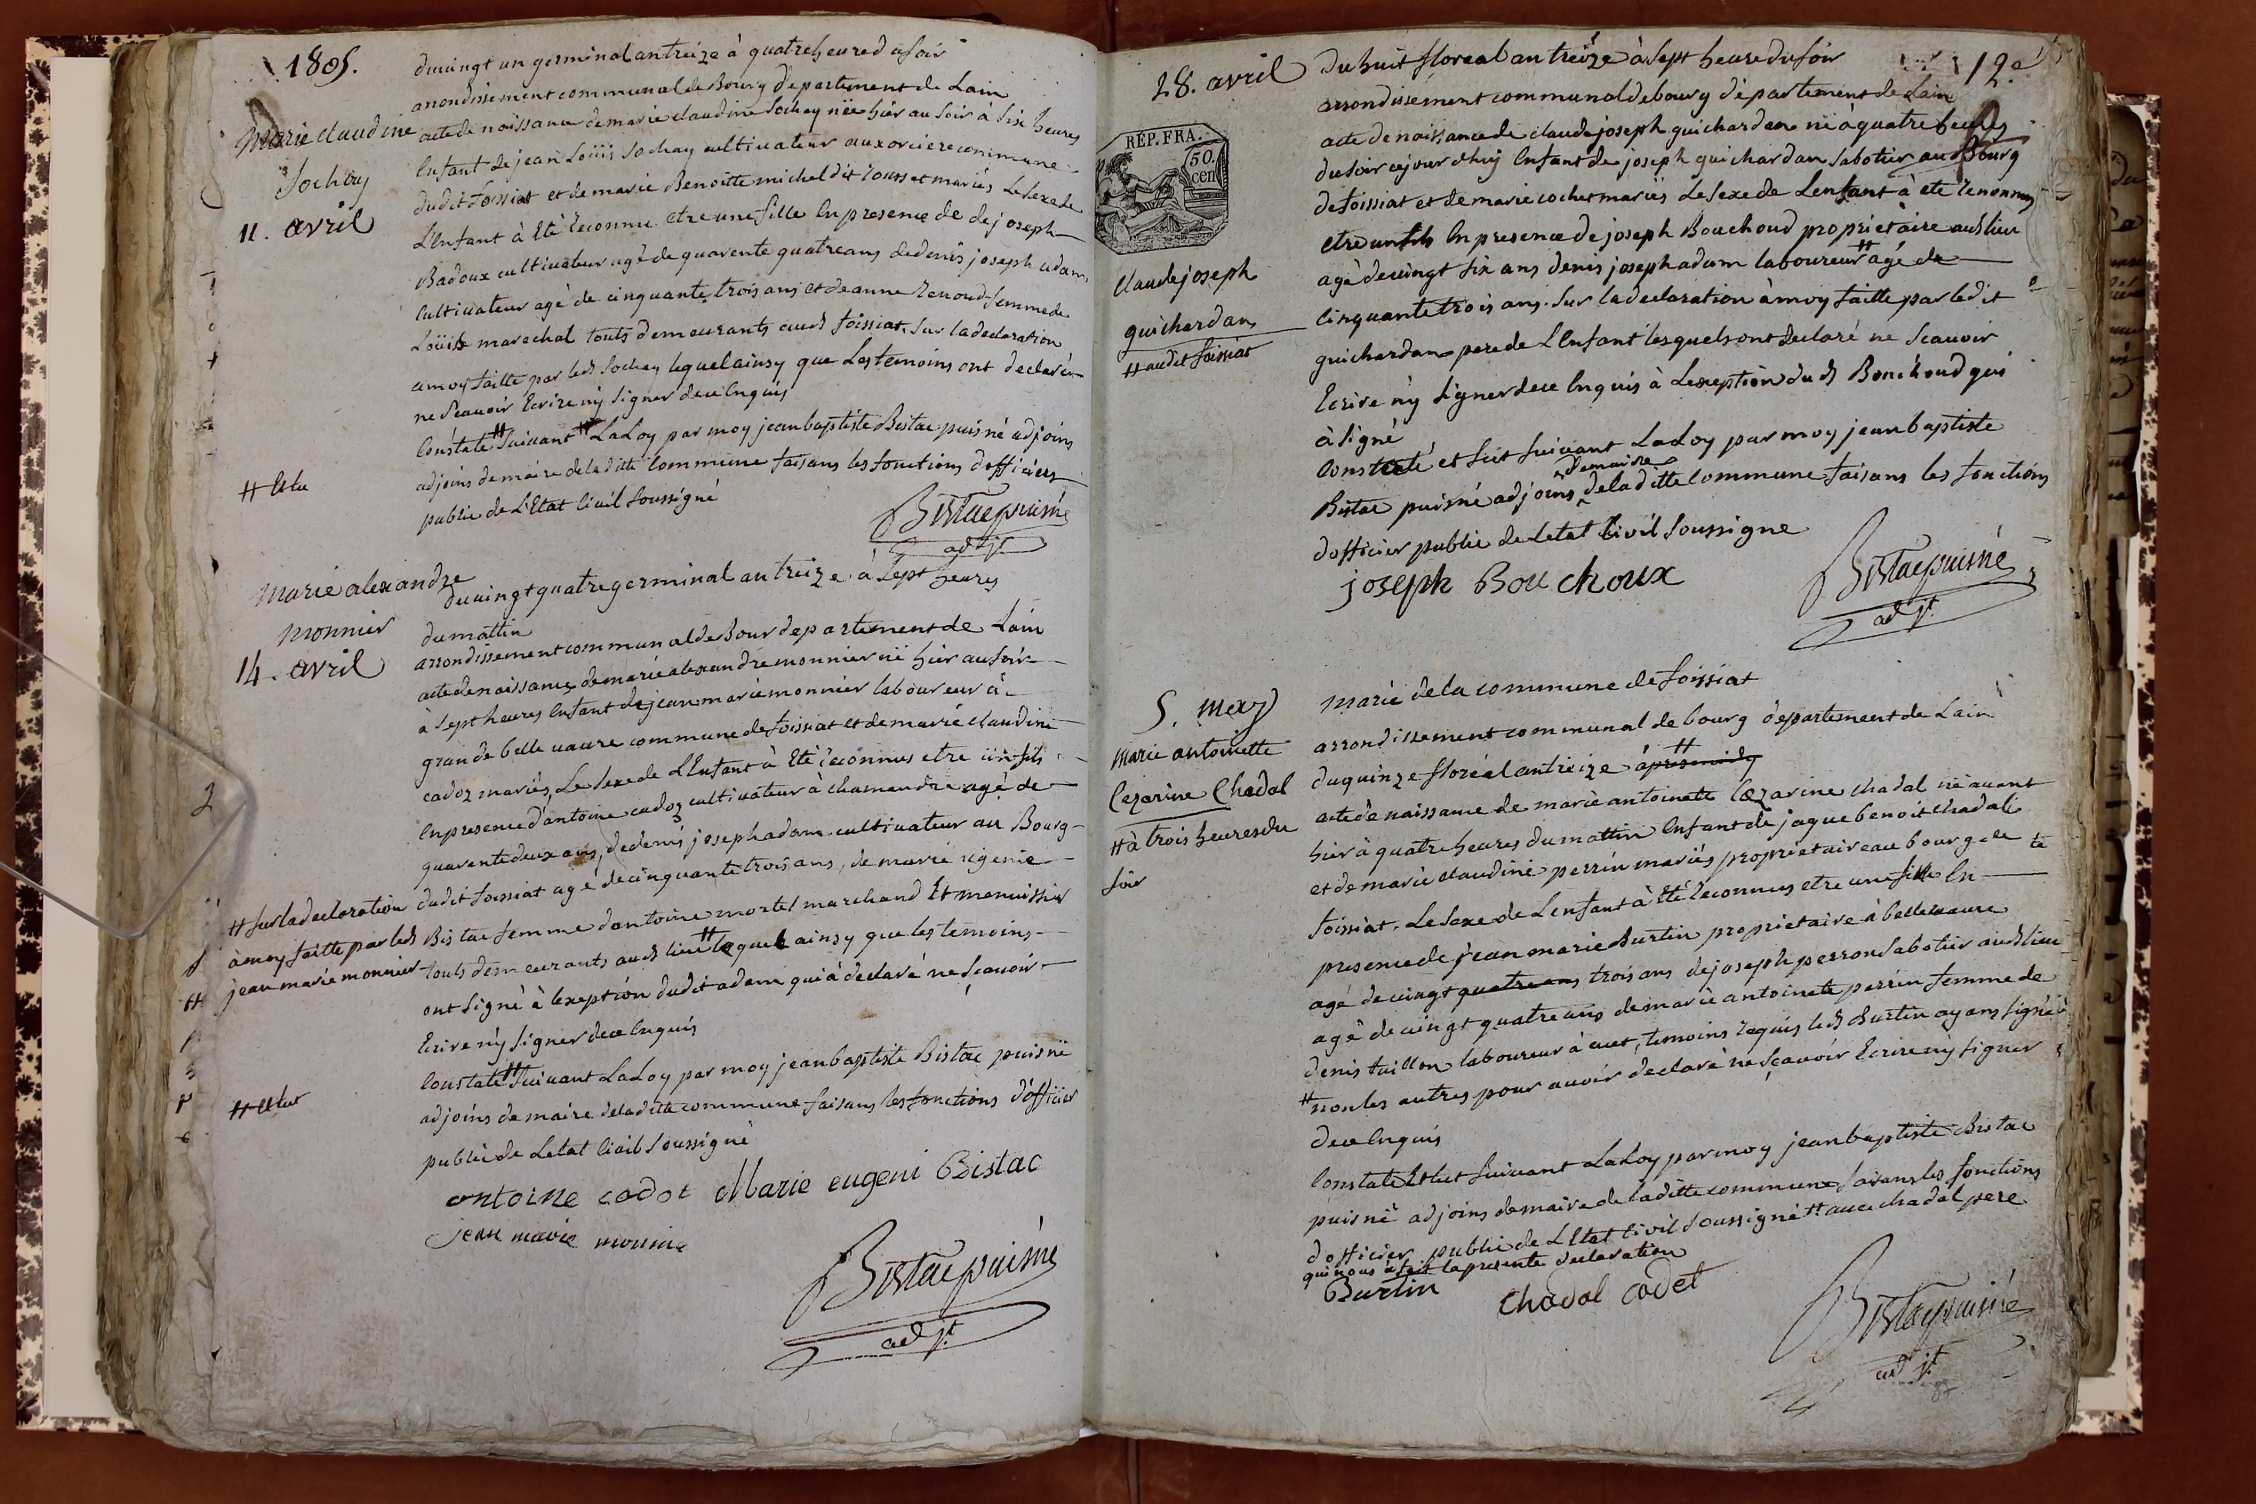 1805.
Marie claudine
Sochay
11. avril
duvingt un germinal an treize à quatre heures du soir
arrondissement communal de Bourg departement de Lain
acte de naissance de marie claudine Sochay née hier au soir à six heures
Enfant de jean Loüis Sochay cultivateur commune
dudit foissiat et de marie Benoitte michel dit rousset mariés Le sexe de
L'Enfant à Eté reconnu etre une fille En presence de de joseph
Badoux cultivateur agé de quarente quatre ans de denis joseph adam
Cultivateur agé de cinquante trois ans et de anne renoud femme de
Loüis marechal touts demeurants aud foissiat. Sur la declaration
a moy faitte par led Sochay lequel ainsy que Les temoins ont declaré
ne Scavoir Ecrire ny signer de ce Enquis
Constaté # Suivant LaLoy par moy jean baptiste Bistac puis né adjoins
# Etu
adjoins de maire de laditte Commune faisans les fonctions d'officiers
public de L'Etat Civil Soussigné
Bistac puisné
adjt
Marie alexandre
monnier
14. avril
du vingt quatre germinal an treize à sept heures
du mattin
arrondissement communal de Bour departement de Lain
acte de naissance de marie alexandre monnier né hier au soir
à sept heures Enfant de jean marie monnier laboureur à
grande belle vavre commune de foissiat et de marie claudine
cadoz mariés, Le Sexe de L'Enfant à Eté reconnus etre un fils
En presence d'antoine cadoz cultivateur à chamandre agé de
quarente deux ans, de denis joseph adam cultivateur au Bourg
dudit foissiat agé de cinquante trois ans, de marie eigenie
# Sur la declaration
à moy faitte par led
jean marie monnier
Bistac femme d'antoine mortel marchand Et menuissier
touts demeurants aud lieu # lequel ainsy que les temoins
ont signé à lexeption dudit adam qui à declaré ne scavoir
Ecrire ny signer de ce Enquis
Constaté # Suivant LaLoy par moy jean baptiste Bistac puis né
# Etu
adjoins de maire de laditte commune faisans les fonctions d'officier
public de Letat Civil Soussigné
antoine cadot Marie eugeni Bistac
jean marie monnie
Bistac puisné
adjt
12.e
28. avril
REP. FRA.
50.
cen
Claude joseph
guichardan
# audit foissiat
du huit floreal an treize à sept heure du soir
arrondissement communal de bourg departement de Lain
acte de naissance de claude joseph guichardan né à quatre heures
du soir cejourdhuy Enfant de joseph guichardan sabotier au Bourg
de foissiat et de marie cochet mariés Le sexe de L'enfant à eté reconnus
etre un fils En presence de joseph Bouchoud proprietaire aud lieu
agé de vingt six ans denis joseph adam laboureur # agé de
cinquante trois ans. Sur la declaration à moy faitte par ledit
guichardan pere de L'Enfant lesquels ont declaré ne scavoir
Ecrire ny signer de ce Enquis à Lexeption dud Bouchoud qui
à signé
Constaté et suivant LaLoy par moy jean baptiste
Bistac puisné adjoins de maire de laditte commune faisans les fonctions
d'officier public de Letat Civil Soussigne
joseph Bouchoux
Bistac puisné
adjt
5. mey
Marie antoinette
Cezarine Chadal
# à trois heures du
soir
Marie de la commune de foissiat
arrondissement communal de bourg departement de Lain
du quinze floréal an treize #
acte de naissance de marie antoinette Cezarine chadal né avant
hier à quatre heures du mattin Enfant de jaque benoit chadal
et de marie claudine perrin mariés proprietaire au bourg de
foissiat. Le Sexe de L'enfant à Eté reconnus etre une fille En
presence de jean marie Burtin proprietaire à bellevavre
agé de vingt quatre ans trois ans de joseph perron sabotier aud lieu
agé de vingt quatre ans de marie antoinette perrin femme de
denis taillon laboureur à cuet, temoins requis led Burtin ayans signé
# non les autres pour avoir declaré ne scavoir Ecrire ny signer
de ce Enquis
Constaté Et lut suivant LaLoy par moy jean baptiste Bistac
puis né adjoins de maire de laditte commune faisans les fonctions
d'officier public de L'Etat Civil Soussigné # avec chadal pere
qui nous à fait la presente declaration
Burtin
Chadal cadet
Bistac puisné
adjt